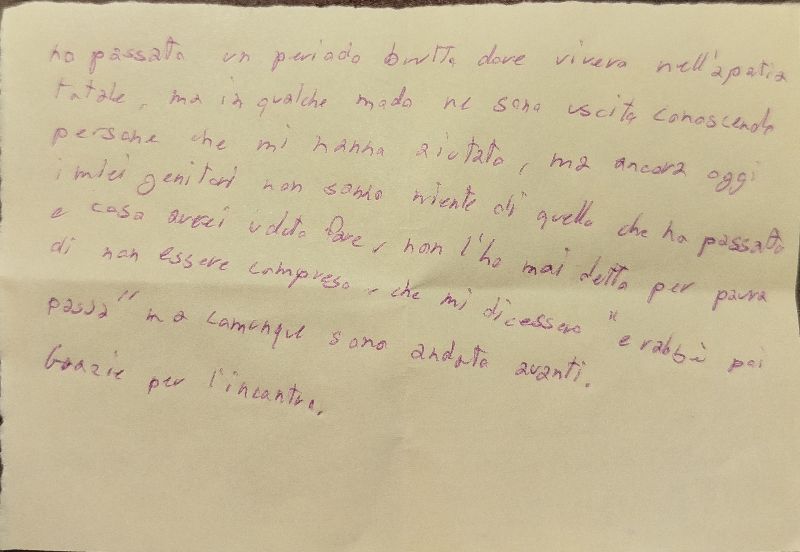 ho passato un periodo brutto dove vivevo nell'apatia
totale, ma in qualche modo ne sono uscito conoscendo
persone che mi hanno aiutato, ma ancora oggi
i miei genitori non sanno niente di quello che ho passato
e cosa avrei voluto fare, non l'ho mai detto per paura
di non essere compreso, che mi dicessero "e vabbè poi
passa" ma comunque sono andato avanti.
Grazie per l'incontro.